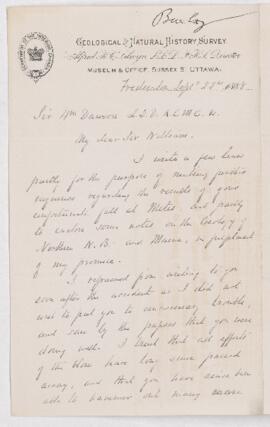 Bailey
GEOLOGICAL & NATURAL HISTORY SURVEY
Alfred R. C. Selwyn LL.D. F.R.S. Director
MUSEUM & OFFICE, SUSSEX St OTTAWA.
Fredericton Sept 22nd 1888
Sir Wm Dawson L.L.D. K.C.M.G. &c
My dear Sir William.
I write a few lines
partly for the purpose of making further
enquiries regarding the results of your
unfortunate fall at Metis and partly
to enclose some notes on the Geology of
Northern N.B. and Maine, in fulfilment
of my promise.
I refrained from writing to you
soon after the accident as I did not
wish to put you to unnecessary trouble,
and saw by the papers that you were
doing well. I trust that all effects
of the blow have long since passed
away, and that you have since been
able to hammer out many more